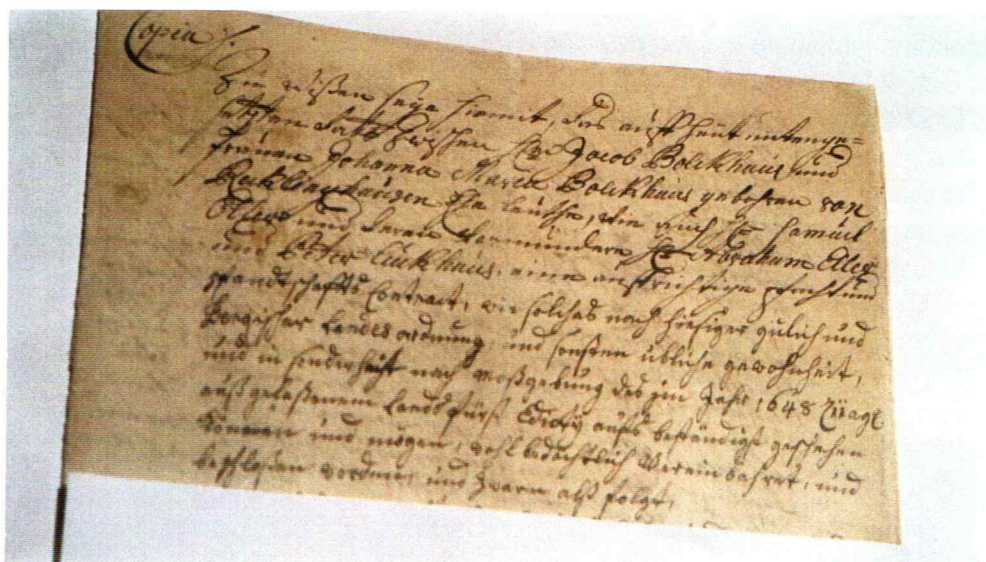 Copia
Zu wißen seye hiermit, das auff heut untenge=
setzten Dato zwischen Hrn Jacob Bolckhaus und
Frauen Johanna Maria Bolckhaus gebohren von
Recklinghausen Ehe leuthe, wie auch Hr Samuel
Eller und deren Vormündere Hr Abraham Eller
und Peter Lückhaus, eine auffrichtige pfacht und
pfandtschaffts Contract, wie solches nach hiesiger gülich und
Bergischer Landes ordnung, und sonsten übliche gewohnheit,
und in sonderheit nach maßgebung des im Jahr 1648
außgelaßenem Landsfürstl Edicty auffs beständigst geschehen
können und mögen, wohlbedächtlich Vereinbahret, und
beschloßen worden, und zwarn alß folgt,